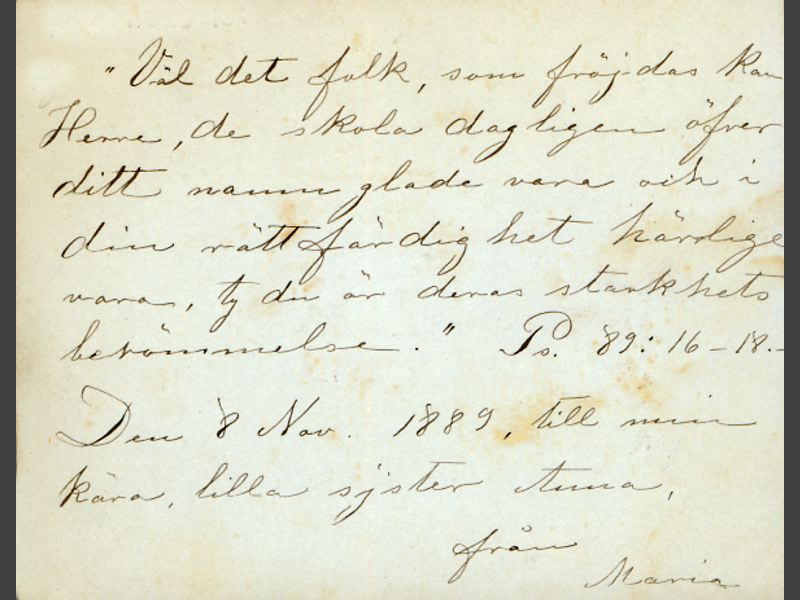 "Väl det folk, som fröjdas kan
Herre, de skola dagligen öfver
ditt namn glade vara och i
din rättfärdighet härlige
vara, ty du är deras starkhets
berömmelse." Ps. 89: 16-18.-
Den 8 Nov. 1889, till min
kära, lilla syster Anna,
från
Maria